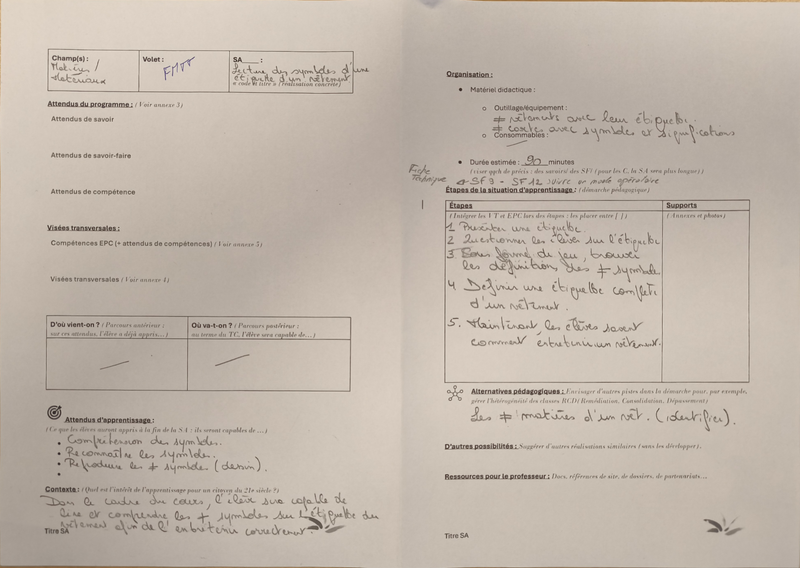 Champ(s) :
Matières /
Matériaux
Volet :
FMTT
SA____ :
Lecture des symboles d'une
étiquette d'un vêtement
« code et titre » (réalisation concrète)
Attendus du programme : ( Voir annexe 3 )
Attendus de savoir
Attendus de savoir-faire
Attendus de compétence
Visées transversales :
Compétences EPC (+ attendus de compétences) ( Voir annexe 5 )
Visées transversales ( Voir annexe 4 )
D'où vient-on ? ( Parcours antérieur :
sur ces attendus, l'élève a déjà appris…)
Où va-t-on ? ( Parcours postérieur :
au terme du TC, l'élève sera capable de…)
Attendus d'apprentissage :
( Ce que les élèves auront appris à la fin de la SA : ils seront capables de …)
• Compréhension des symboles.
• Reconnaître les symboles.
• Reproduire les ≠ symboles (dessin).
•
Contexte : ( Quel est l'intérêt de l'apprentissage pour un citoyen du 21e siècle ?)
Dans le cadre du cours, l'élève sera capable de
lire et comprendre les ≠ symboles sur l'étiquette du
vêtement afin de l'entretenir correctement.
Titre SA
Organisation :
• Matériel didactique :
o Outillage/équipement :
≠ vêtements avec leur étiquette.
≠ cartes avec symboles et significations
o Consommables :
• Durée estimée : 90 minutes
( viser qqch de précis : des savoirs/ des SF) ( pour les C, la SA sera plus longue))
Fiche
Technique
SF9 - SF12 : suivre un mode opératoire
Étapes de la situation d'apprentissage : ( démarche pédagogique)
Étapes
( Intégrer les VT et EPC lors des étapes : les placer entre [ ] )
Supports
( Annexes et photos)
1. Présenter une étiquette.
2. Questionner les élèves sur l'étiquette
3. Sous forme de jeu, trouver
les définitions des ≠ symbole
4. Définir une étiquette complète
d'un vêtement.
5. Maintenant, les élèves savent
comment entretenir un vêtement.
Alternatives pédagogiques : Envisager d'autres pistes dans la démarche pour, par exemple,
gérer l'hétérogénéité des classes RCD( Remédiation, Consolidation, Dépassement)
Les ≠ matières d'un vêt. (identifier).
D'autres possibilités : Suggérer d'autres réalisations similaires ( sans les développer).
Ressources pour le professeur : Docs, références de site, de dossiers, de partenariats…
Titre SA